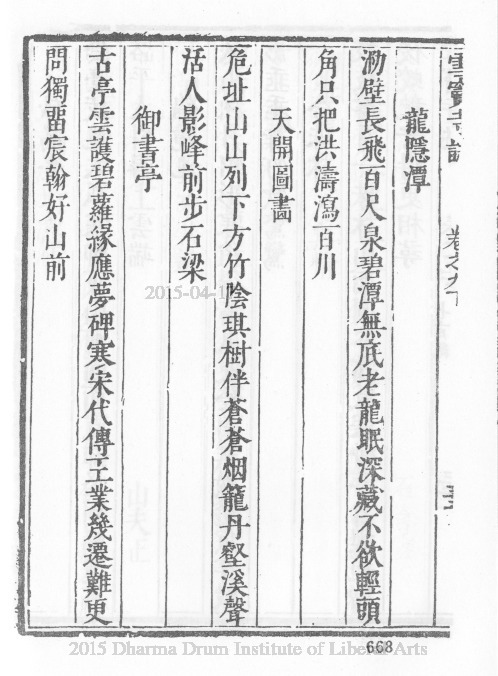 雪竇寺誌　卷之九下
龍隱潭
泐壁長飛百尺泉碧潭無底老龍眠深藏不欲輕頭
角只把洪濤瀉百川
天開圖畵
危址山山列下方竹陰琪樹伴蒼蒼烟籠丹壑溪聲
活人影峰前步石梁
御書亭
古亭雲護碧蘿緣應夢碑寒宋代傳王業幾遷難更
問獨畱宸翰好山前
2015-04-1
663
2015 Dharma Drum Institute of Liberal Arts